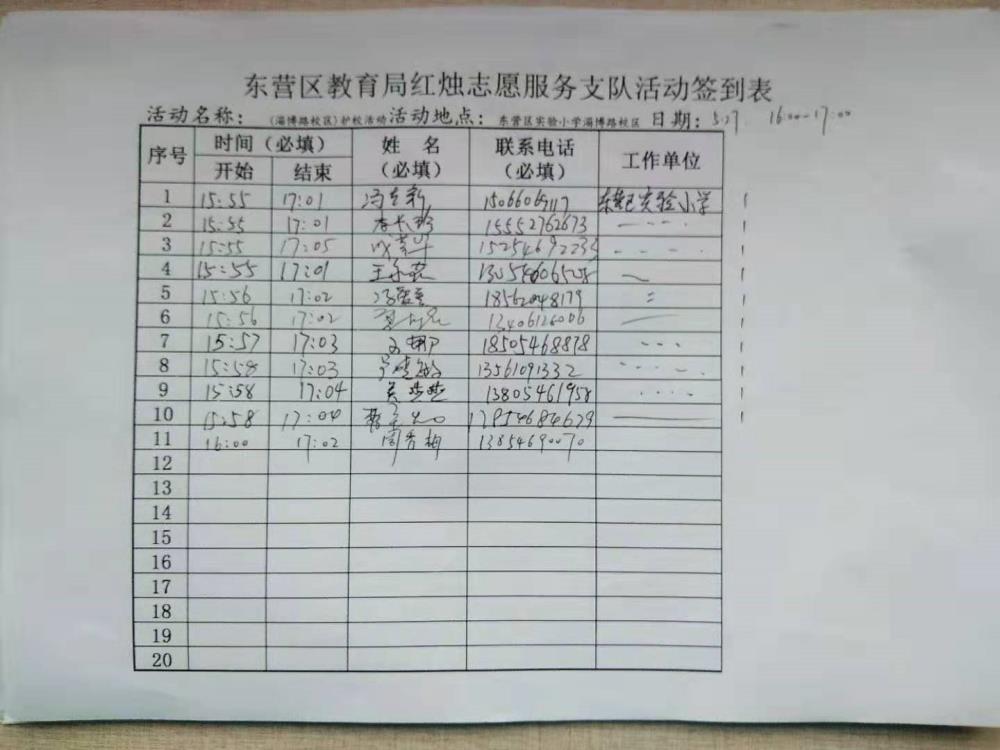 东营区教育局红烛志愿服务支队活动签到表
活动名称：（淄博路校区）护校活动 活动地点：东营区实验小学淄博路校区 日期：5.27. 16:00-17:00
序号 时间（必填） 姓 名（必填） 联系电话（必填） 工作单位
开始 结束
1 15:55 17:01 实验小学
2 15:55 17:01 李长珍 15552762673
3 15:55 17:05
4 15:55 17:01
5 15:56 17:02 18562048179
6 15:56 17:02 13406126006
7 15:57 17:03 18505468878
8 15:58 17:03 13561091332
9 15:58 17:04 13805461958
10 15:58 17:04 17854684629
11 16:00 17:02 周秀梅 13854690070
12
13
14
15
16
17
18
19
20